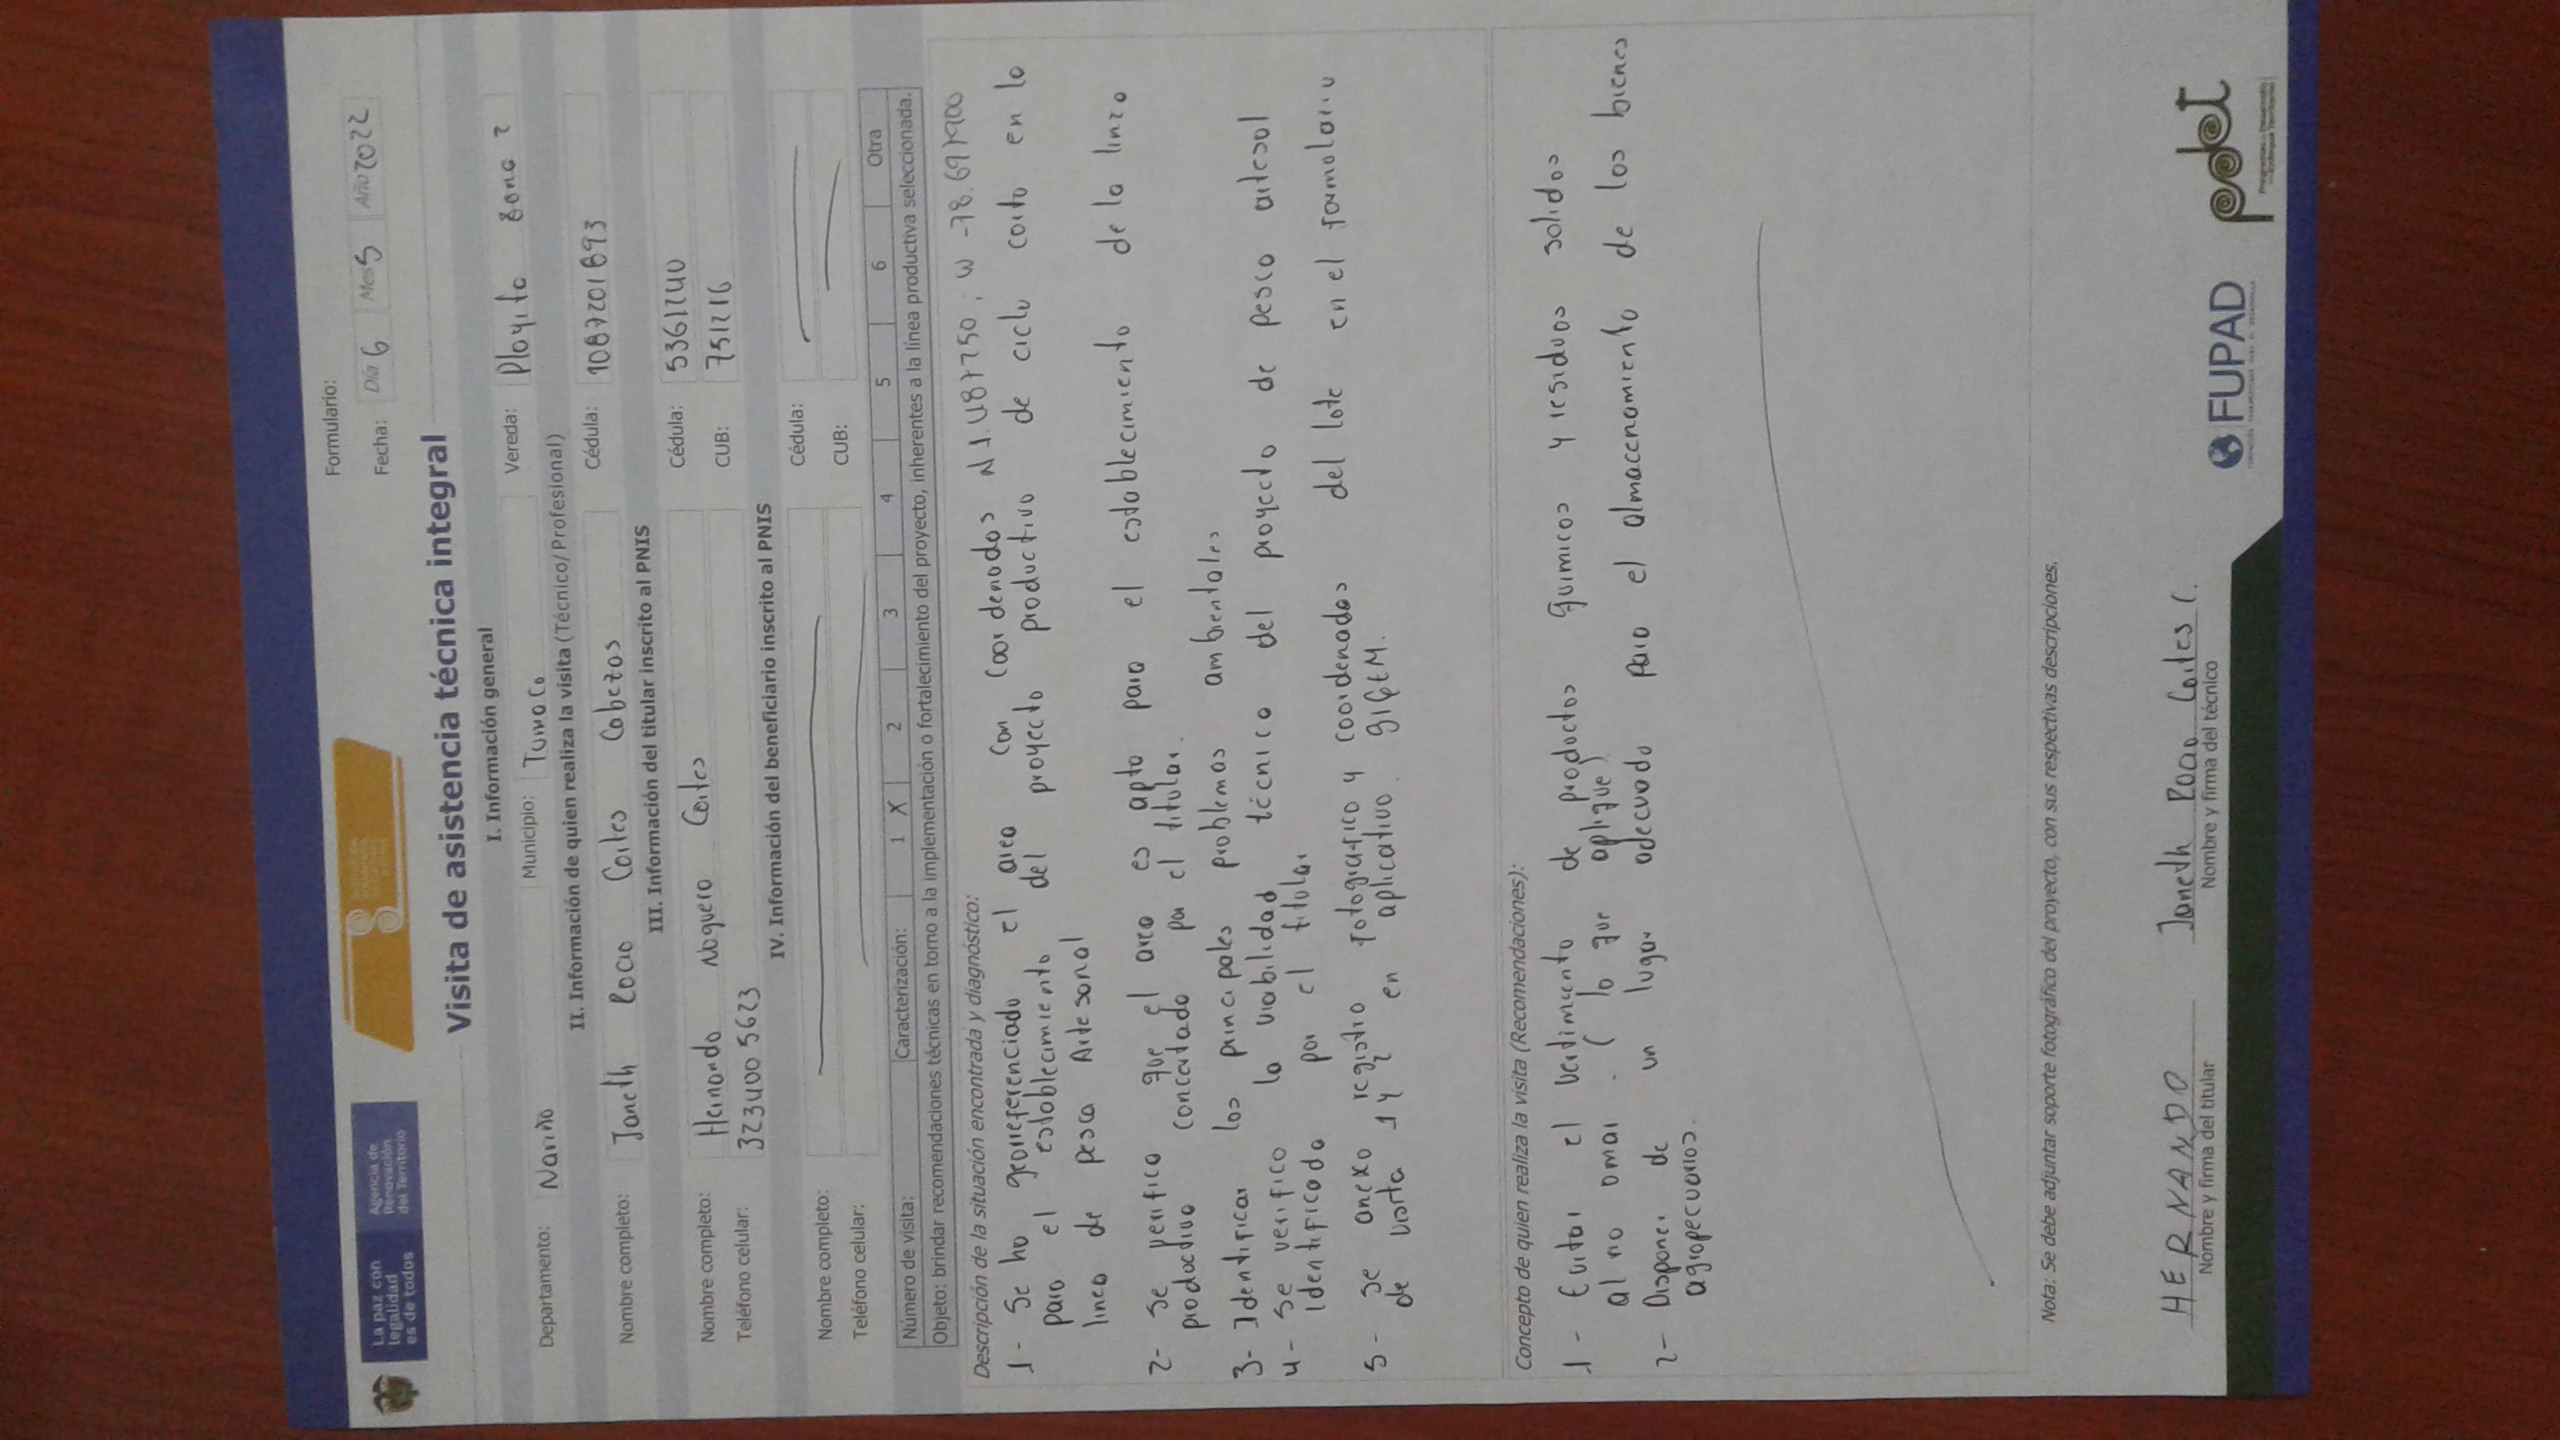 La paz con
legalidad
es de todos
Agencia de
Renovación
del Territorio
Formulario:
Fecha: Día 6 Mes 5 Año 2022
Visita de asistencia técnica integral
I. Información general
Departamento: Nariño Municipio: Tumaco Vereda: Playita zona 2
II. Información de quien realiza la visita (Técnico/Profesional)
Nombre completo: Janeth Rocio Cortes Cabezas Cédula: 1087201893
III. Información del titular inscrito al PNIS
Nombre completo: Hernando Noguera Cortes Cédula: 5361240
Teléfono celular: 3234005623 CUB: 751216
IV. Información del beneficiario inscrito al PNIS
Nombre completo: Cédula:
Teléfono celular: CUB:
Número de visita: Caracterización: 1 X 2 3 4 5 6 Otra
Objeto: brindar recomendaciones técnicas en torno a la implementación o fortalecimiento del proyecto, inherentes a la línea productiva seleccionada.
Descripción de la situación encontrada y diagnóstico:
1- Se ha georreferenciado el area con coordenadas N 1.487750; W -78.691900
para el establecimiento del proyecto productivo de ciclo corto en la
linea de pesca Artesanal
2- se verifico que el area es apta para el establecimiento de la linea
productiva concertada por el titular.
3- Identificar los principales problemas ambientales
4- se verifico la viabilidad técnica del proyecto de pesca artesal
identificado por el titular
5- se anexo registro fotografico y coordenadas del lote en el formulario
de visita 1 y 2 en aplicativo. GIGEM.
Concepto de quien realiza la visita (Recomendaciones):
1- Evitar el vertimiento de productos quimicos y residuos solidos
al no omar. ( lo que aplique)
2- Disponer de un lugar adecuado para el almacenamiento de los bienes
agropecuarios.
Nota: Se debe adjuntar soporte fotográfico del proyecto, con sus respectivas descripciones.
HERNANDO
Nombre y firma del titular
Janeth Rocio Cortes C.
Nombre y firma del técnico
FUPAD
pdet